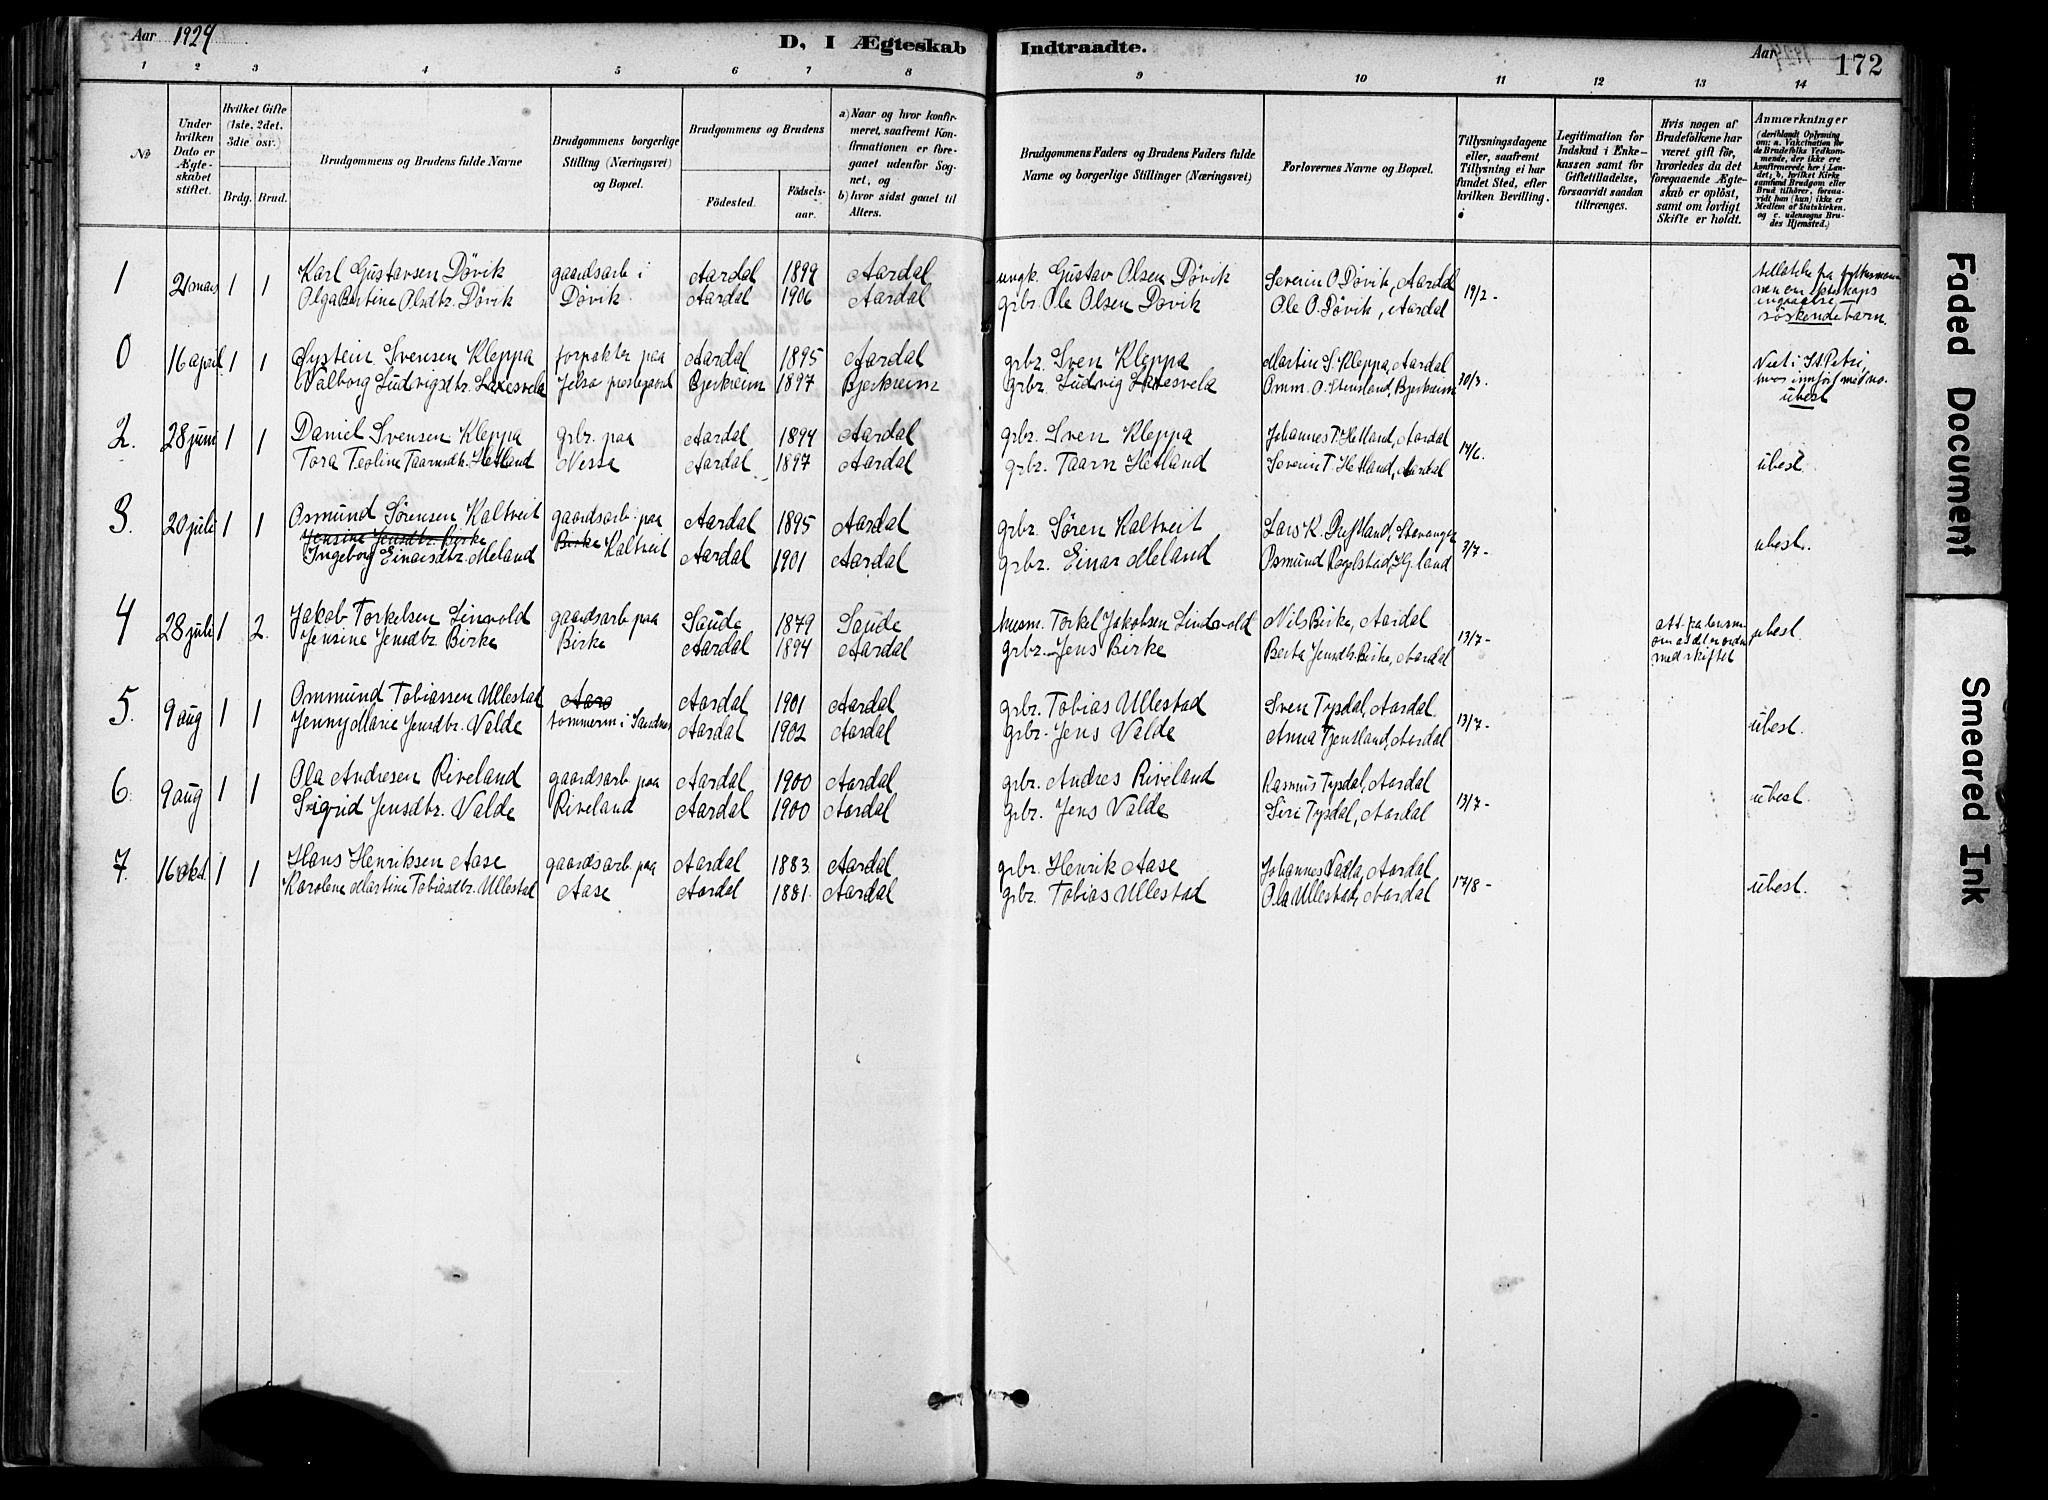 Aar 1924
D, I Ægteskab Indtraadte.
Aar 172
1 2 3 4 5 6 7 8 9 10 11 12 13 14
No
Under hvilken Dato er Ægteskabet stiftet.
Hvilket Gifte (1ste, 2det, 3die osv.)
Brdg. Brud.
Brudgommens og Brudens fulde Navne
Brudgommens borgerlige Stilling (Næringsvei) og Bopæl.
Brudgommens og Brudens
Födested. Födsels-aar.
a) Naar og hvor konfirmeret, saafremt Konfirmationen er foregaaet udenfor Sognet, og
b) hvor sidst gaaet til Alters.
Brudgommens Faders og Brudens Faders fulde Navne og borgerlige Stillinger (Næringsvei)
Forlovernes Navne og Bopæl.
Tillysningsdagene eller, saafremt Tillysning ei har fundet Sted, efter hvilken Bevilling.
Legitimation for Indskud i Enkekassen samt for Giftetilladelse, forsaavidt saadan tiltrænges.
Hvis nogen af Brudefolkene har været gift för, hvorledes da det foregaaende Ægteskab er oplöst, samt om lovligt Skifte er holdt.
Anmærkninger
(deriblandt Oplysning om: a. Vakcination for de Brudefolks Vedkommende, der ikke ere konfirmerede her i Landet; b, hvilket Kirkesamfund Brudgom eller Brud tilhörer, forsaavidt han (hun) ikke er Medlem af Statskirken, og c. udensogns Brudes Hjemsted.)
1 2 mars 1 1 Karl Gustavsen Døvik gaardsarb i Aardal 1899 Aardal ungk. Gustav Olsen Døvik Severin O. Døvik, Aardal 19/2 -
Olga Bertine Olsdtr. Døvik Døvik. Aardal 1906 Aardal grbr. Ole Olsen Døvik Ole O. Døvik, Aardal
søskendebarn.
0 16 april 1 1 Øystein Svensen Kleppa forpakter paa Aardal 1895 Aardal grbr. Sven Kleppa Martin S. Kleppa, Aardal 30/3. Viet i St. Petri,
Valborg Ludvigsdtr. Laxesvela Jelsa prestegaard Bjerkreim 1897 Bjerkreim grbr. Ludvig Laxesvela Omm. O. Stensland, Bjerkreim
ubesl
2. 28 juni 1 1 Daniel Svensen Kleppa grbr. paa Aardal 1894 Aardal grbr. Sven Kleppa Johannes T. Hetland, Aardal 14/6.
Tora Teoline Taarnsdtr. Hetland Nesse Aardal 1897 Aardal grbr. Taarn Hetland Severin T. Hetland, Aardal ubesl.
3. 20 juli 1 1 Osmund Sørensen Kaltveit gaardsarb. paa Aardal 1895 Aardal grbr. Søren Kaltveit Lars K. Stavanger
Jensine Jensdtr. Birke Birke Kaltveit 3/7 - ubesl.
Ingeborg Einarsdtr. Meland Aardal 1901 Aardal grbr. Einar Meland Osmund
4 28 juli 1 2. Jakob Torkelsen Lindvold gaardsarb paa Saude 1879 Saude husm. Torkel Jakobsen Lindvold Nils Birke, Aardal 13/7 - ubesl.
Jensine Jensdtr Birke Birke Aardal 1894 Aardal grbr. Jens Birke Berta Jensdtr. Birke, Aardal med skiftet
5. 9 aug 1 1 Ommund Tobiassen Ullestad Aaro Aardal 1901 Aardal grbr. Tobias Ullestad Sven Tysdal, Aardal. 13/7 -
Jenny Marie Jensdtr. Valde tømmerm i Sandnes Aardal 1902 Aardal grbr. Jens Valde Anna Tjentland, Aardal ubesl.
6. 9 aug 1 1 Ola Andresen Riveland gaardsarb paa Aardal 1900 Aardal grbr. Andres Riveland Rasmus Tysdal, Aardal
Sigrid Jensdtr. Valde Riveland Aardal 1900 Aardal grbr. Jens Valde Siri Tysdal, Aardal 13/7 - ubesl.
7. 16 okt 1 1 Hans Henriksen Aase gaardsarb. paa Aardal 1883. Aardal grbr. Henrik Aase Johannes Vadla, Aardal
Karolene Martine Tobiasdtr. Ullestad Aase Aardal 1881 Aardal grbr. Tobias Ullestad Ola Ullestad, Aardal 17/8 - ubesl.
Faded Document
Smeared Ink